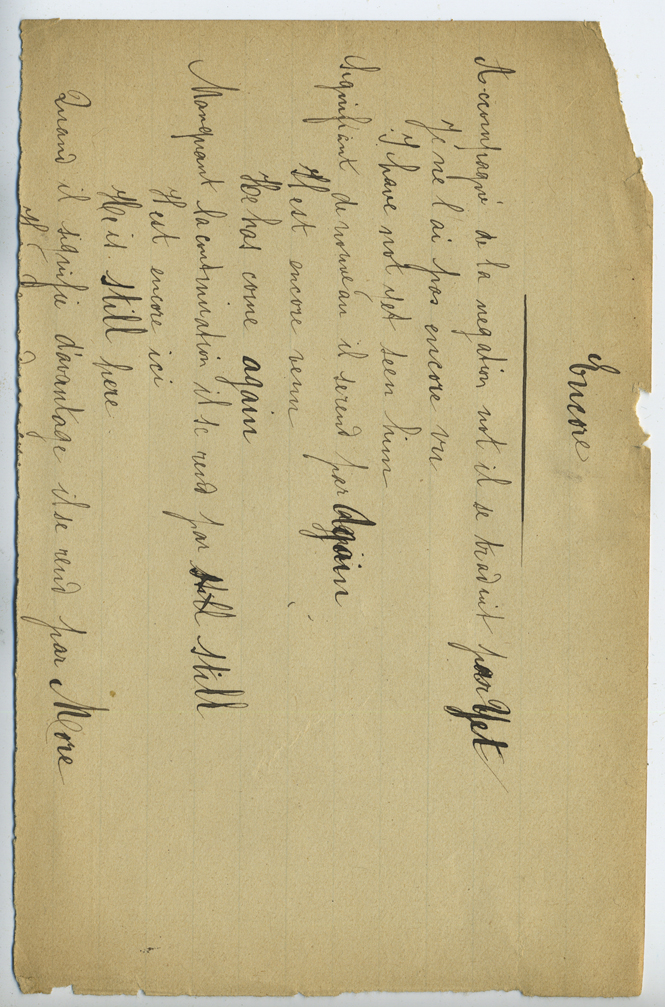 Encore
Accompagné de la negation not il se traduit par Yet
Je ne l'ai pas encore vu
I have not yet seen him
Signifiant de nouveau il se rend par Again
Il est encore venu
He has come again
Marquant la continuation il se rend par still still
Il est encore ici
He is still here
Quand il signifie d'avantage il se rend par More